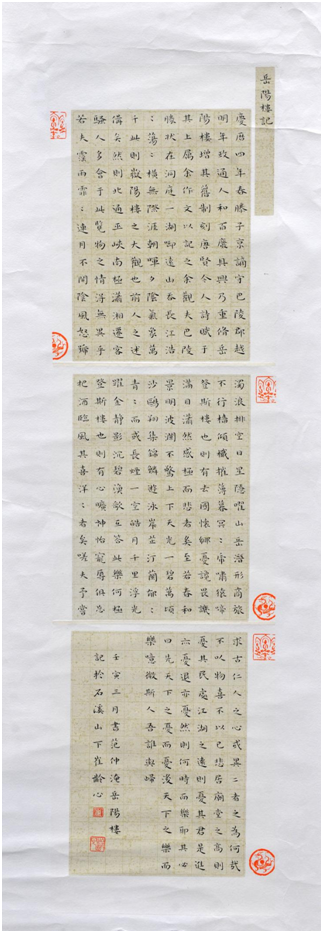 岳陽樓記
慶曆四年春滕子京謫守巴陵郡越
明年政通人和百廢具興乃重脩岳
陽樓增其舊制刻唐賢今人詩賦于
其上屬余作文以記之余觀夫巴陵
勝狀在洞庭一湖啣遠山吞長江浩
：蕩：橫無際涯朝暉夕陰氣象萬
千此則岳陽樓之大觀也前人之述
備矣然則北通巫峽南極瀟湘遷客
騷人多會于此覽物之情得無異乎
若夫霪雨霏：連月不開陰風怒號
濁浪排空日星隱曜山岳潛形商旅
不行檣傾楫摧薄暮冥：虎嘯猿啼
登斯樓也則有去國懷鄉憂讒畏譏
滿目蕭然感極而悲者矣至若春和
景明波瀾不驚上下天光一碧萬頃
沙鷗翔集錦鱗遊泳岸芷汀蘭郁：
青：而或長煙一空皓月千里浮光
躍金靜影沉碧漁歌互答此樂何極
登斯樓也則有心曠神怡寵辱偕忘
把酒臨風其喜洋：者矣嗟夫予嘗
求古仁人之心或異二者之為何哉
不以物喜不以己悲居廟堂之高則
憂其民處江湖之遠則憂其君是進
亦憂退亦憂然則何時而樂耶其必
曰先天下之憂而憂後天下之樂而
樂噫微斯人吾誰與歸
壬寅三月書范仲淹岳陽樓
記於石溪山下崔齡心